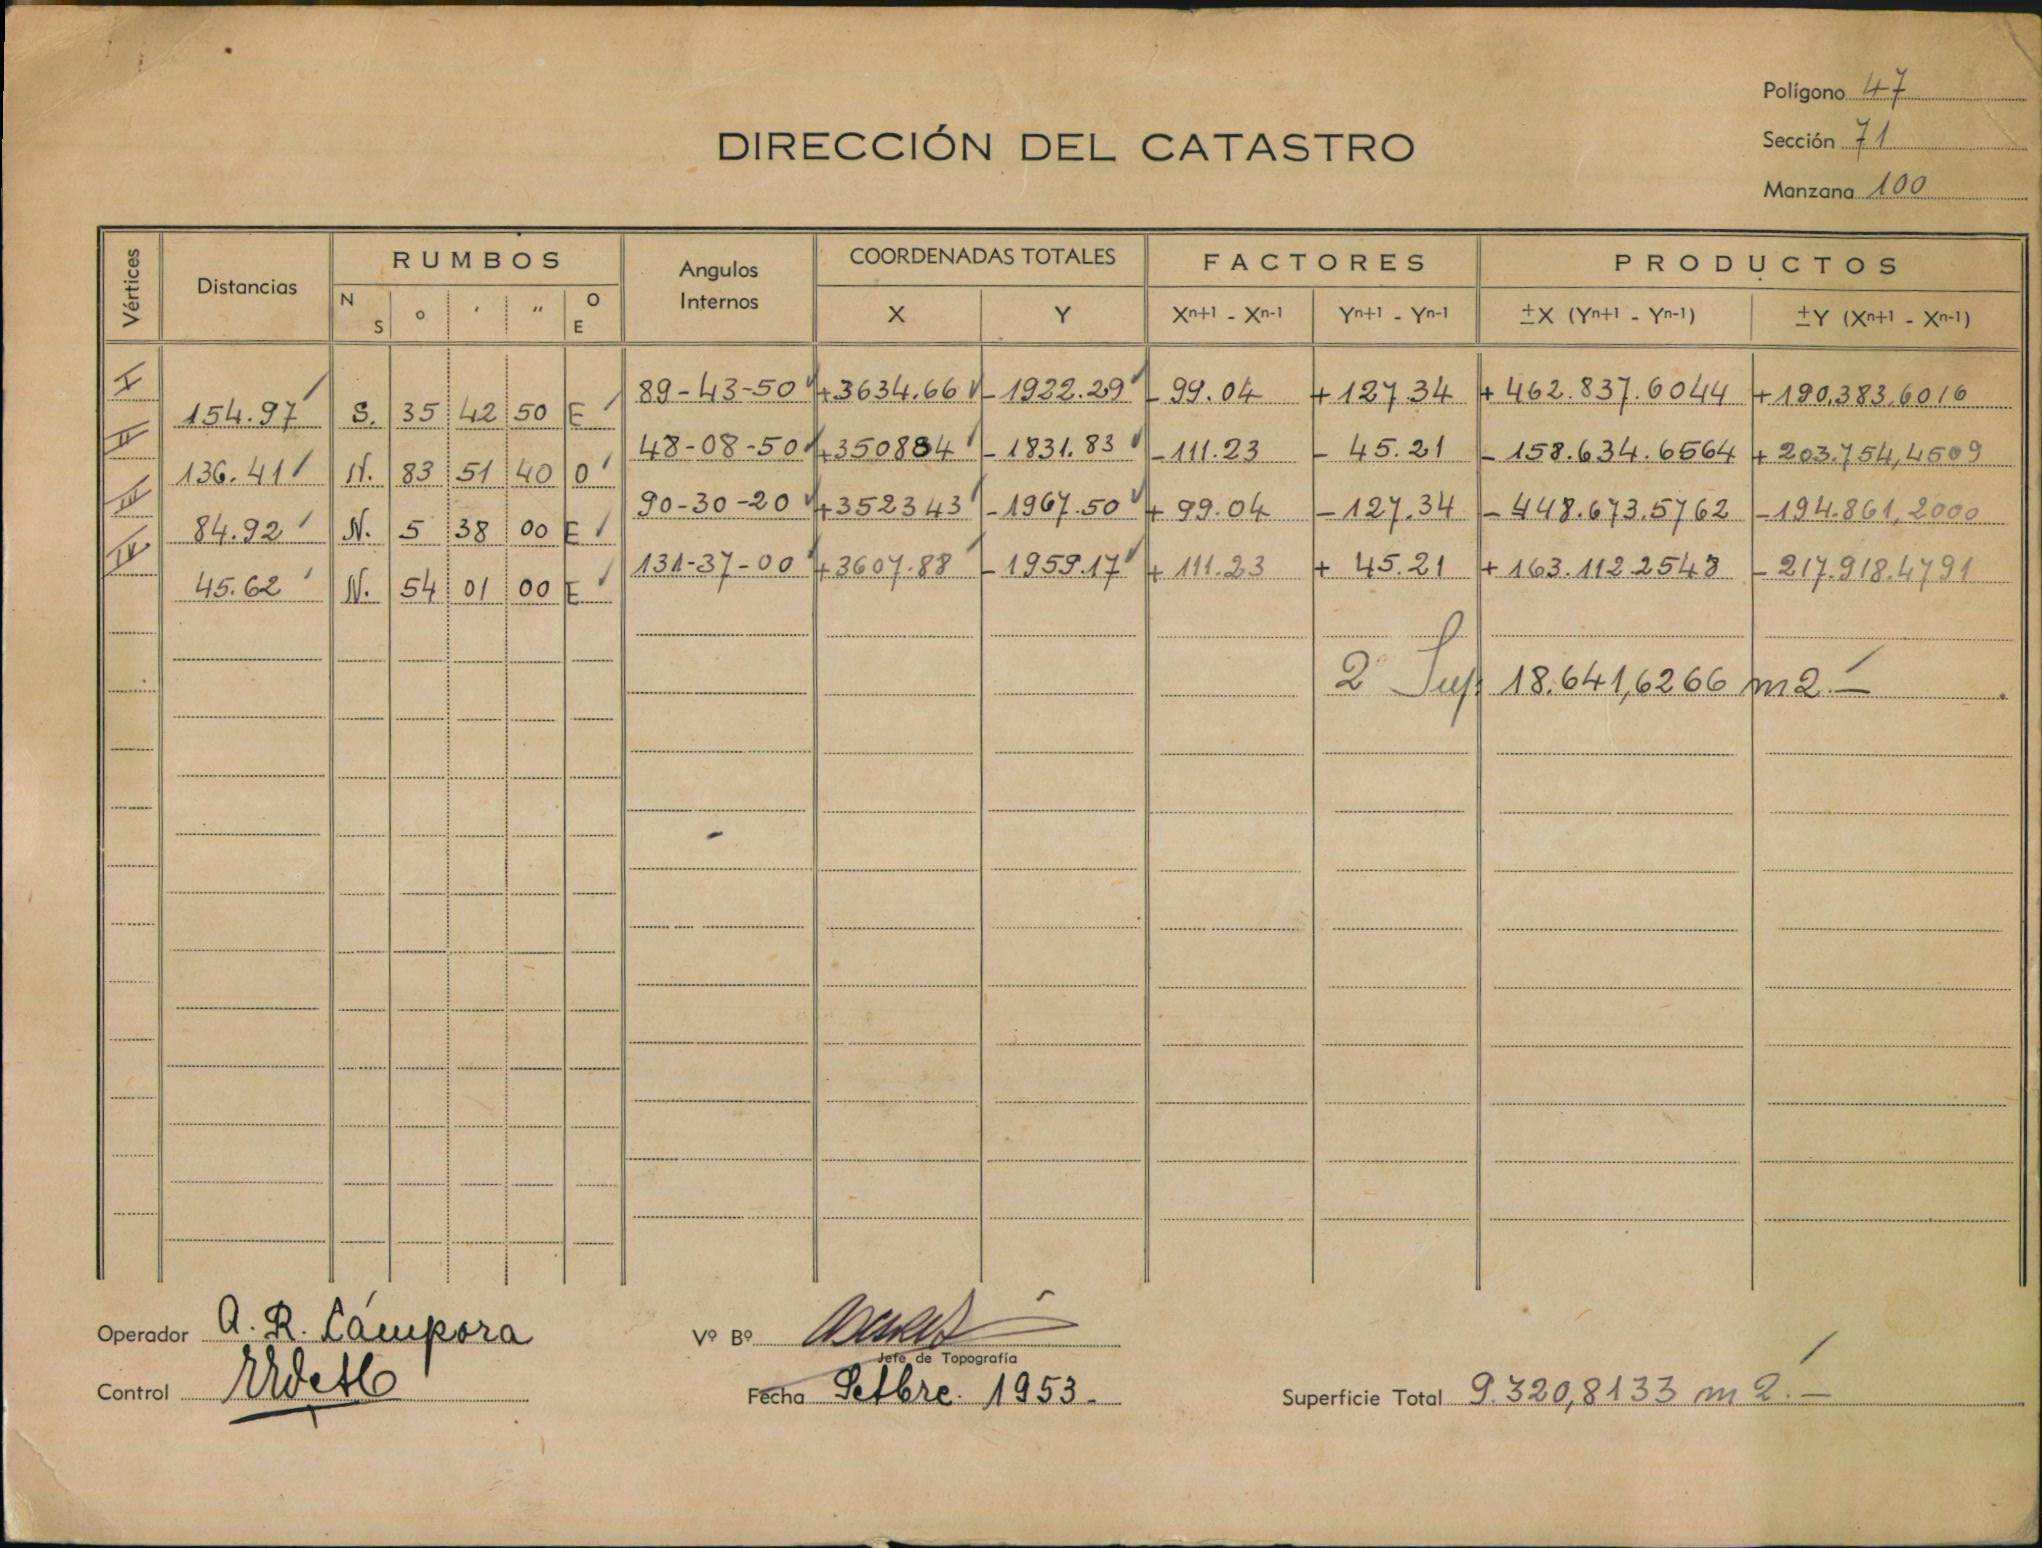 Polígono 47
DIRECCIÓN DEL CATASTRO
Sección 71
Manzana 100
Vértices
Distancias
RUMBOS
N S ° ' " O E
Angulos Internos
COORDENADAS TOTALES
X Y
FACTORES
Xn+1 - Xn-1 Yn+1 - Yn-1
PRODUCTOS
±X (Yn+1 - Yn-1) ±Y (Xn+1 - Xn-1)
I 89-43-50 +3634.66 -1922.29 -99.04 +127.34 +462.837.6044 +190.383.6016
154.97 S. 35 42 50 E
II 48-08-50 +350884 -1831.83 -111.23 -45.21 -158.634.6564 +203.754,4509
136.41 N. 83 51 40 O
III 90-30-20 +352343 -1967.50 +99.04 -127.34 -448.673.5762 -194.861,2000
84.92 N. 5 38 00 E
IV 131-37-00 +3607.88 -1959.17 +111.23 +45.21 +163.112.2548 -217.918.4791
45.62 N. 54 01 00 E
2 Sup: 18.641,6266 m2.-
Operador A. R. Cámpora
Vº Bº
Jefe de Topografía
Control
Fecha Setbre. 1953.-
Superficie Total 9.320,8133 m2.-